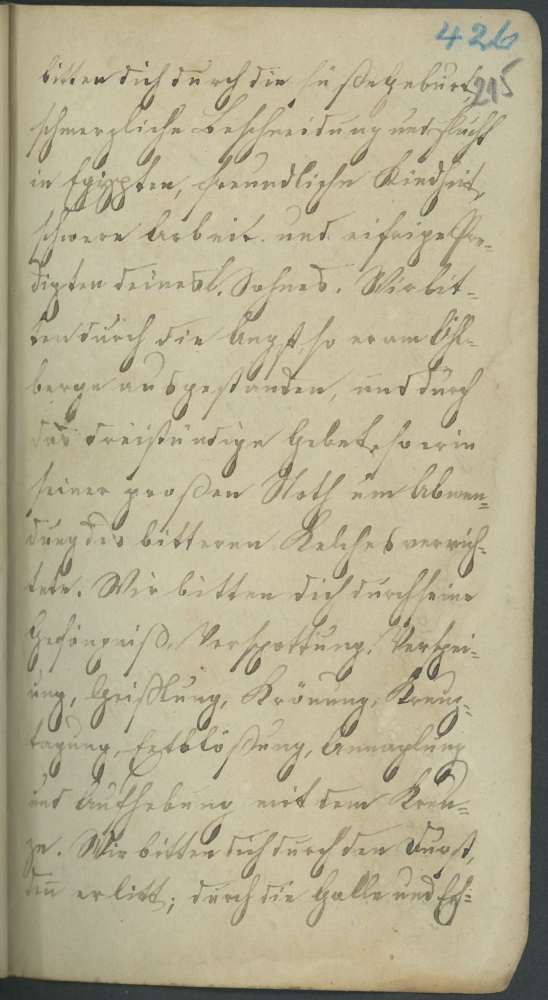 426
215
bitten dich durch die süße Geburt,
schmerzliche Beschneidung und Flucht
in Egipten, freundliche Kindheit,
schwere Arbeit und eifrige Pre-
digten deines l. Sohnes. Wir bit-
ten durch die Angst so er am Öhl-
berge ausgestanden, und durch
das dreistündige Gebet, so er in
seiner großen Noth um Abwen-
dung des bitteren Kelches verrich-
tete. Wir bitten dich durch seine
Gefängniß, Verspottung, Verspei-
ung, Geißlung, Krönung, Kreuz-
tragung, Entblößung, Annaglung
und Aufhebung mit dem Kreu-
ze. Wir bitten dich durch den Durst,
den er litt; durch die Galle und Eß-